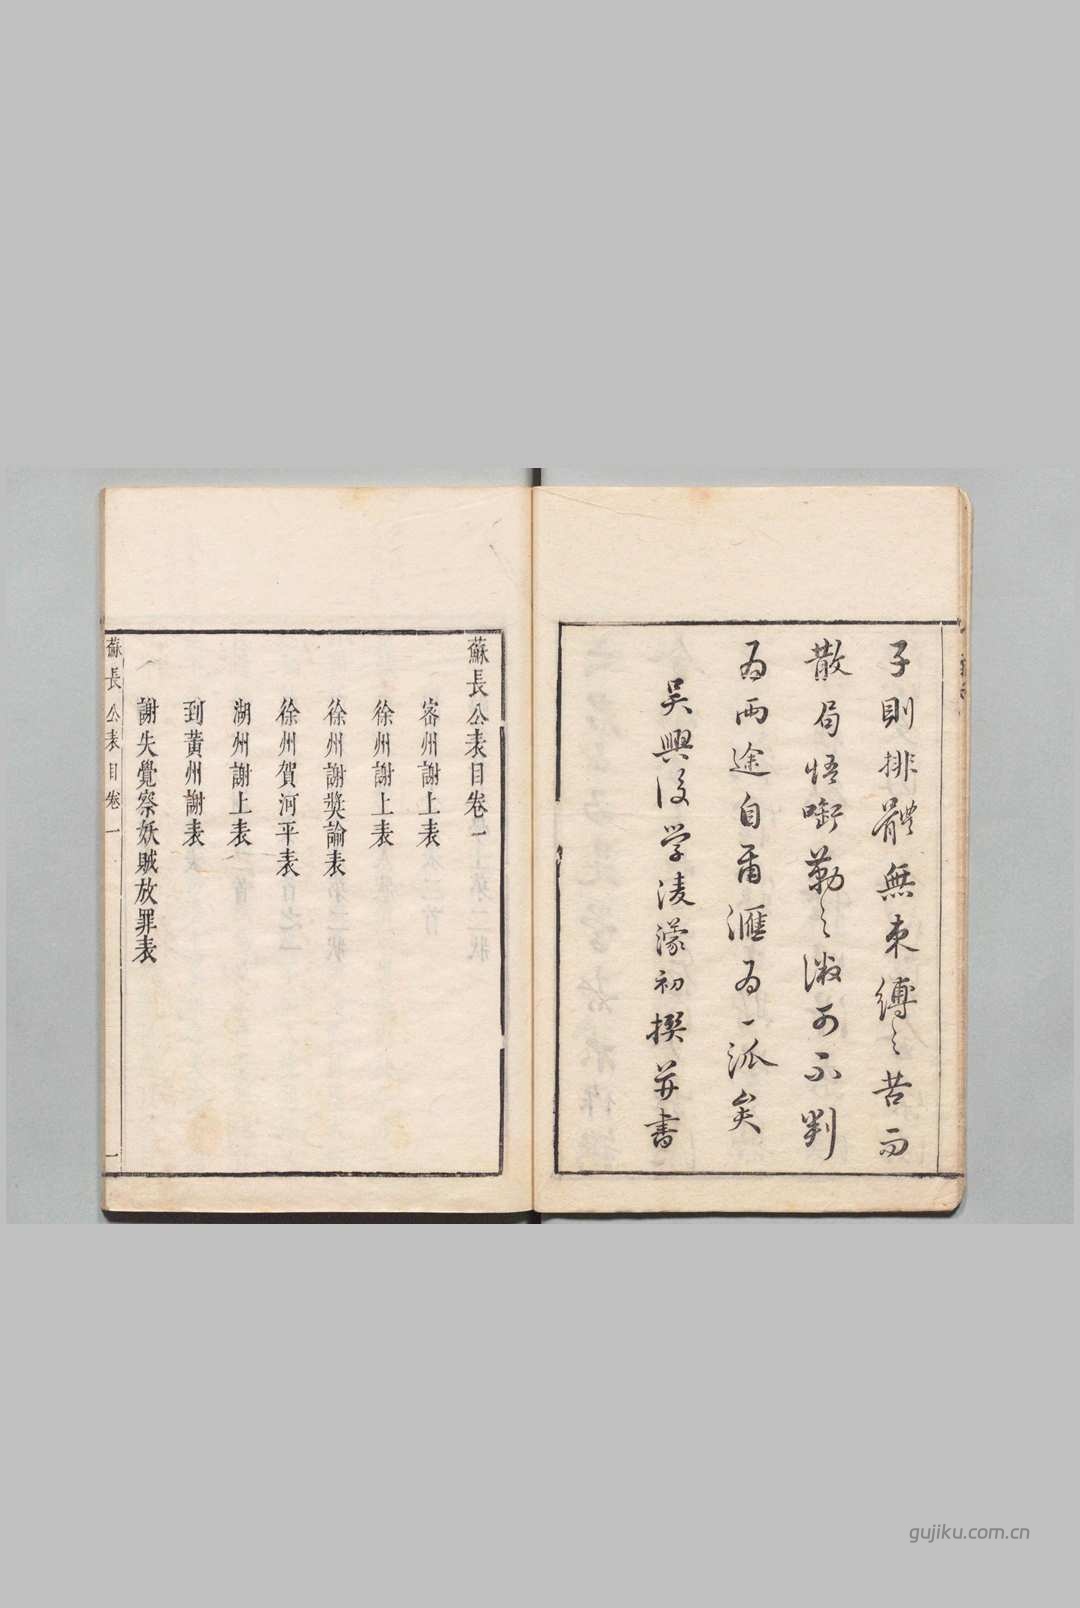 子則排體無束縛之苦而
散局悟啣勒之溦可不判
為兩途自爾滙為一派矣
吳興後学凌濛初撰并書
蘇長公表目卷一
密州謝上表
徐州謝上表
徐州謝獎諭表
徐州賀河平表
湖州謝上表
到黃州謝表
謝失覺察妖賊放罪表
蘇長公表目卷一
一
gujiku.com.cn